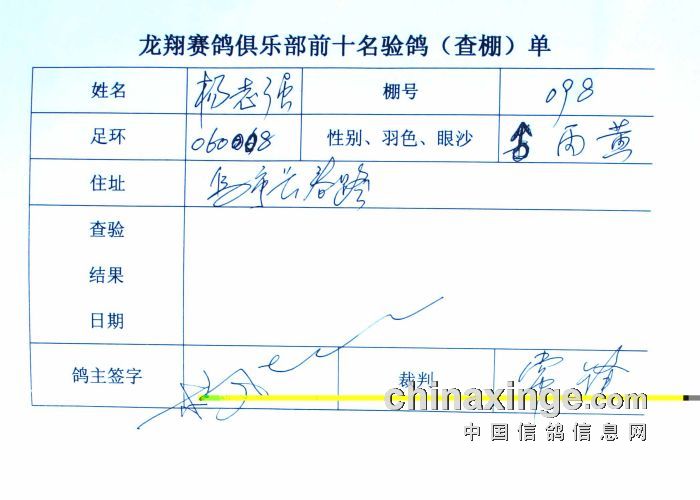 龙翔赛鸽俱乐部前十名验鸽（查棚）单
姓名 杨志强 棚号 098
足环 060018 性别、羽色、眼沙 雨 黄
住址
查验
结果
日期
鸽主签字 裁判
chinaxinge.com
中国信鸽信息网